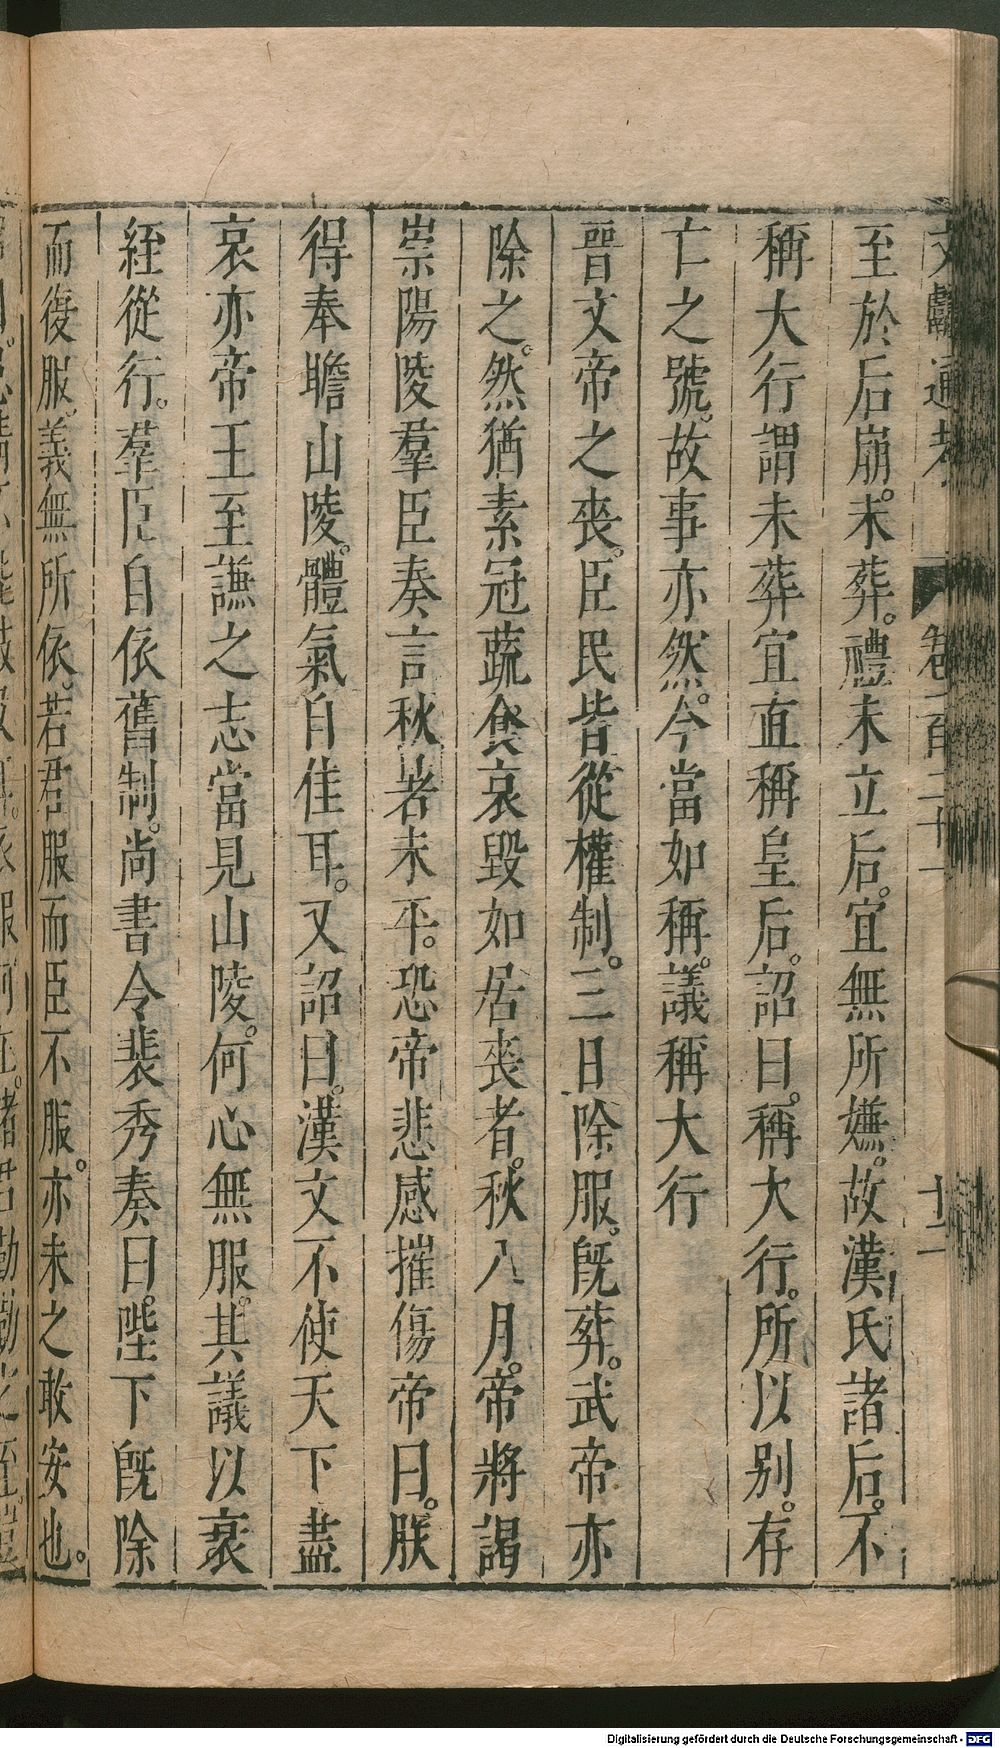 文獻通考 卷一百二十一 十二
至於后崩。未葬。禮未立后。宜無所嫌。故漢氏諸后。不
稱大行謂未葬宜直稱皇后。詔曰。稱大行。所以別。存
亡之號。故事亦然。今當如稱。議稱大行
晉文帝之喪。臣民皆從權制。三日除服。旣葬。武帝亦
除之。然猶素冠蔬食哀毀如居喪者。秋八月。帝將謁
崇陽陵羣臣奏言秋暑未平。恐帝悲感摧傷帝曰。朕
得奉瞻山陵。體氣自佳耳。又詔曰。漢文不使天下盡
哀亦帝王至謙之志當見山陵。何心無服。其議以衰
絰從行。羣臣自依舊制。尚書令裴秀奏曰。陛下旣除
而復服。義無所依。若君服而臣不服。亦未之敢安也。
Digitalisierung gefördert durch die Deutsche Forschungsgemeinschaft - DFG